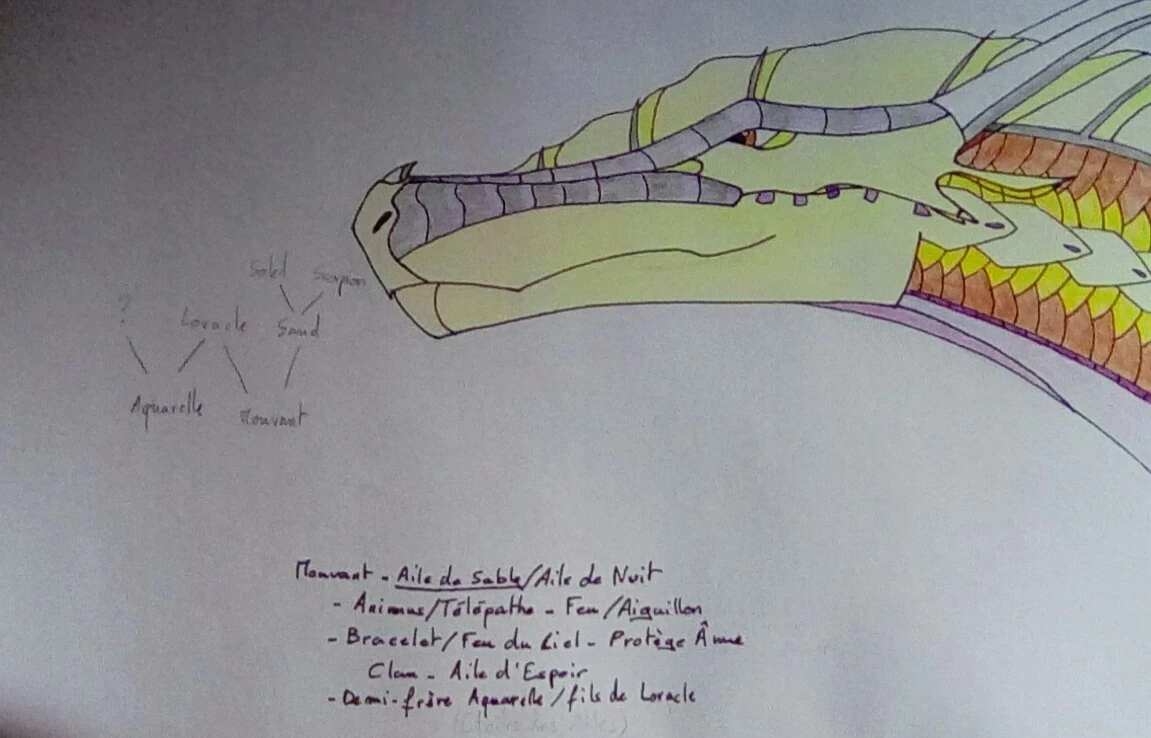 Soleil Scorpion
? Loracle Sand
Aquarelle Mouvant
Mouvant - Aile de Sable/Aile de Nuit
- Animus/Télépathe - Feu/Aiguillon
- Bracelet/Feu du Ciel - Protège Âme
Clan - Aile d'Espoir
- Demi-frère Aquarelle/fils de Loracle